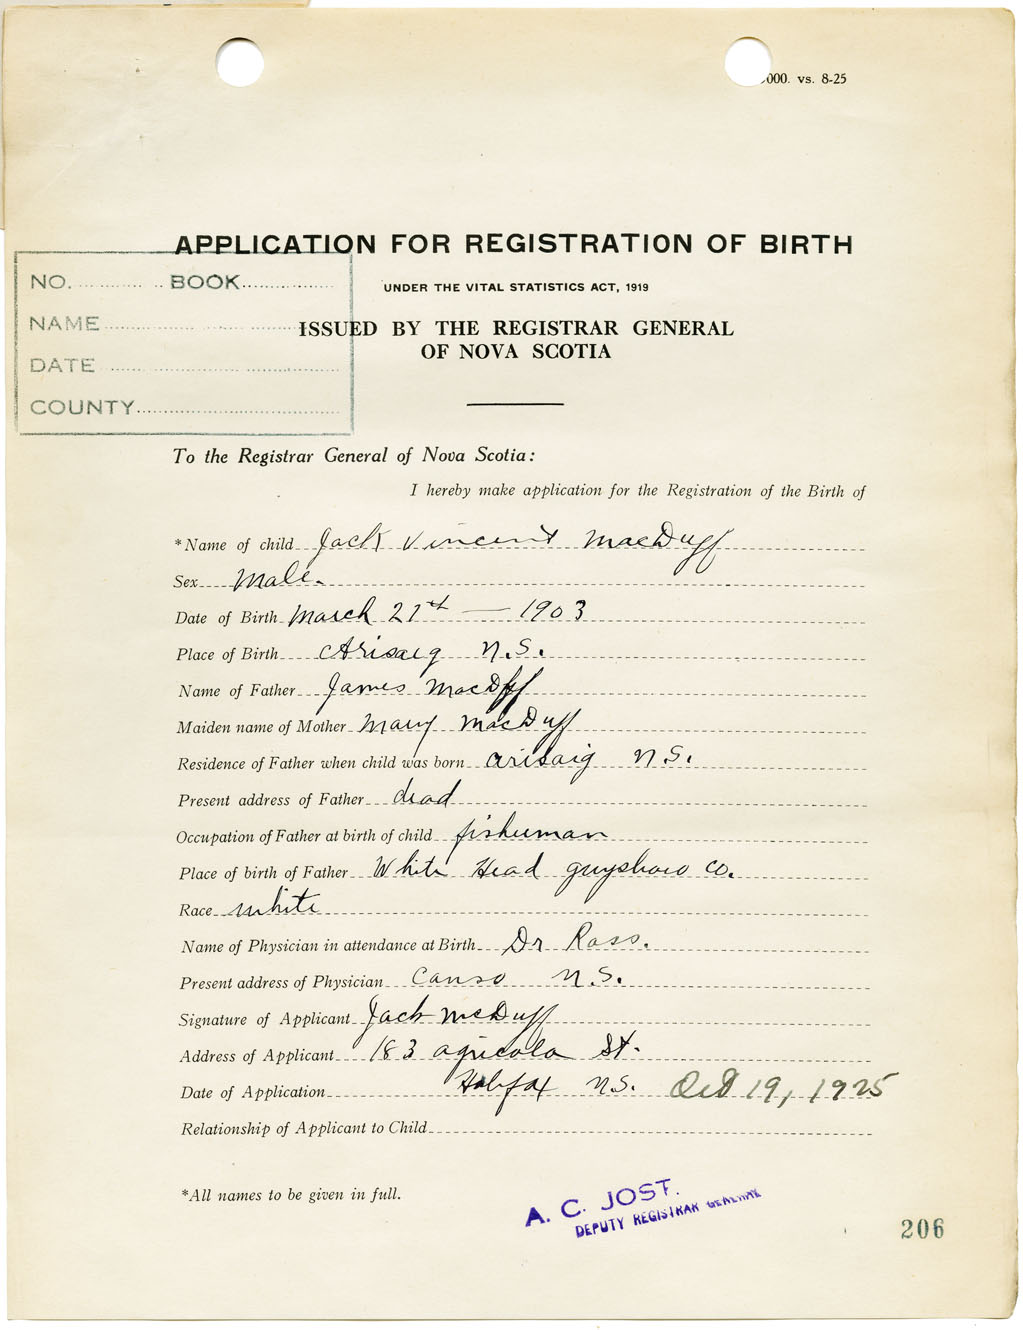 000. vs. 8-25
APPLICATION FOR REGISTRATION OF BIRTH
NO. BOOK
UNDER THE VITAL STATISTICS ACT, 1919
NAME
ISSUED BY THE REGISTRAR GENERAL
OF NOVA SCOTIA
DATE
COUNTY
To the Registrar General of Nova Scotia:
I hereby make application for the Registration of the Birth of
*Name of child Jack Vincent MacDuff
Sex Male.
Date of Birth March 27th — 1903
Place of Birth Arisaig N.S.
Name of Father James MacDuff
Maiden name of Mother Mary MacDuff
Residence of Father when child was born arisaig N.S.
Present address of Father dead
Occupation of Father at birth of child fisherman
Place of birth of Father White Head guysboro co.
Race white
Name of Physician in attendance at Birth Dr Ross.
Present address of Physician Canso N.S.
Signature of Applicant Jack McDuff
Address of Applicant 183 agricola St.
Date of Application Halifax N.S. Oct 19, 1925
Relationship of Applicant to Child
*All names to be given in full.
A. C. JOST.
DEPUTY REGISTRAR GENERAL
206